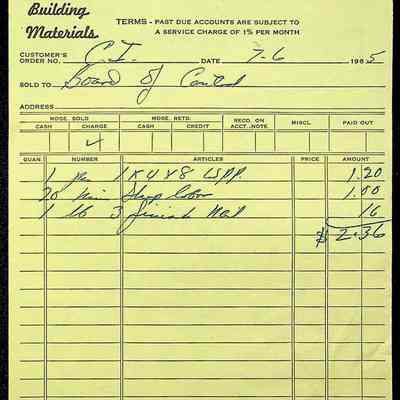 Building
Materials
TERMS - PAST DUE ACCOUNTS ARE SUBJECT TO
A SERVICE CHARGE OF 1% PER MONTH
CUSTOMER'S
ORDER NO. C.I. DATE 7-6 1965
SOLD TO Board of Control
ADDRESS
MDSE. SOLD MDSE. RETD. RECD. ON ACCT.-NOTE MISCL PAID OUT
CASH CHARGE CASH CREDIT
4
QUAN NUMBER ARTICLES PRICE AMOUNT
1 1x4x8 WPP 1.20
20 Min Shop Labor 1.00
1 lb 3 finish Nail 16
$ 2.36